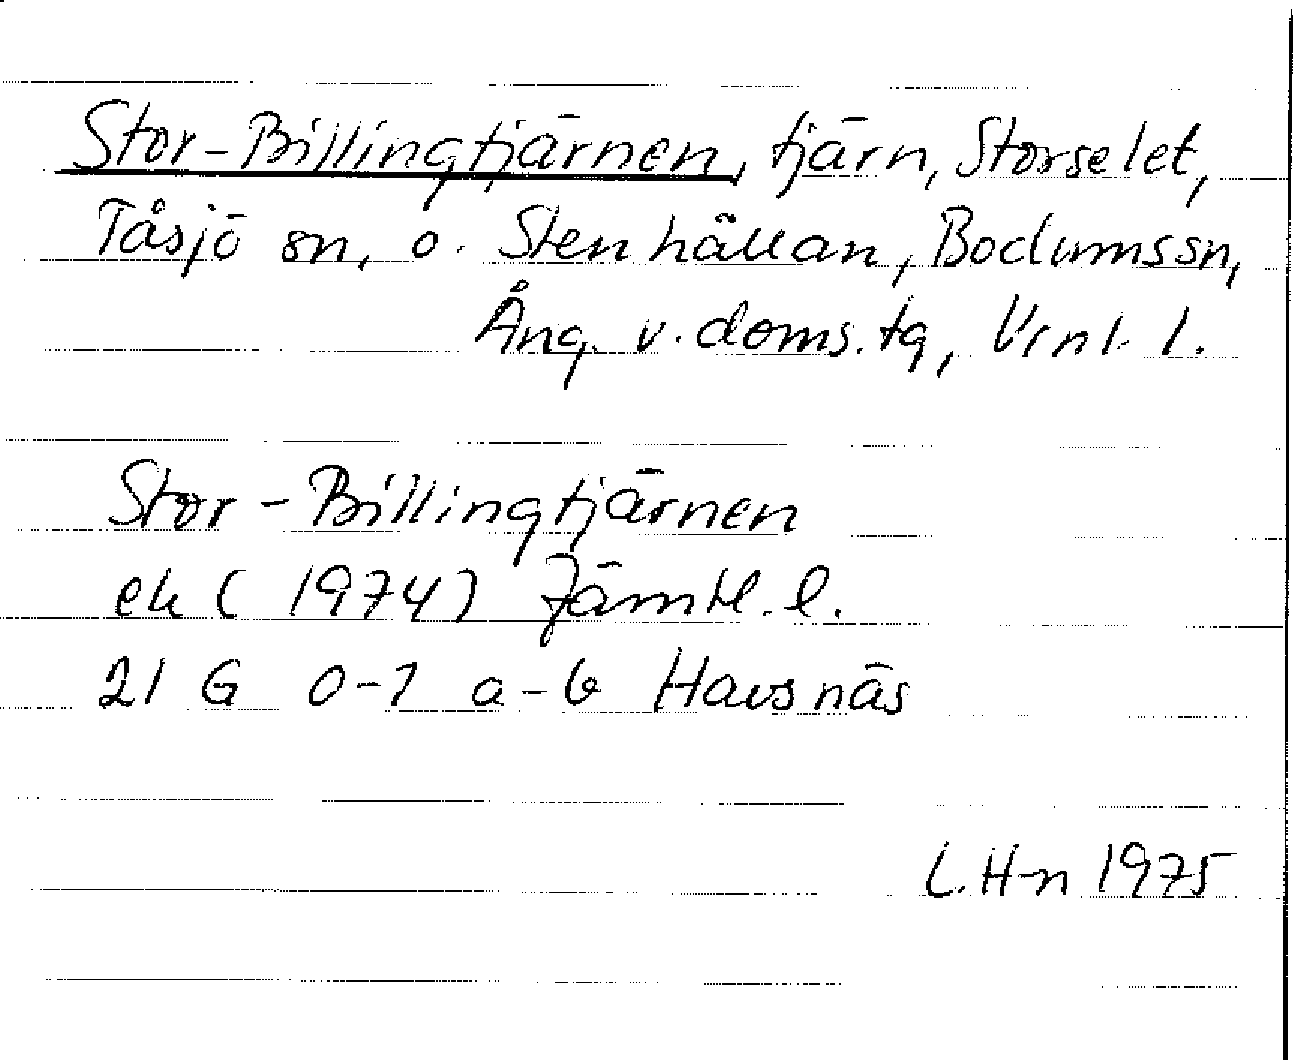 Stor-Billingtjärnen, tjärn, Storselet,
Tåsjö sn, o. Stenhällan, Bodums sn,
Ång. v. doms. tg, Vrnl. l.
Stor-Billingtjärnen
ek (1974) Jämtl. l.
21 G 0-1 a-b Havsnäs
L. H-n 1975